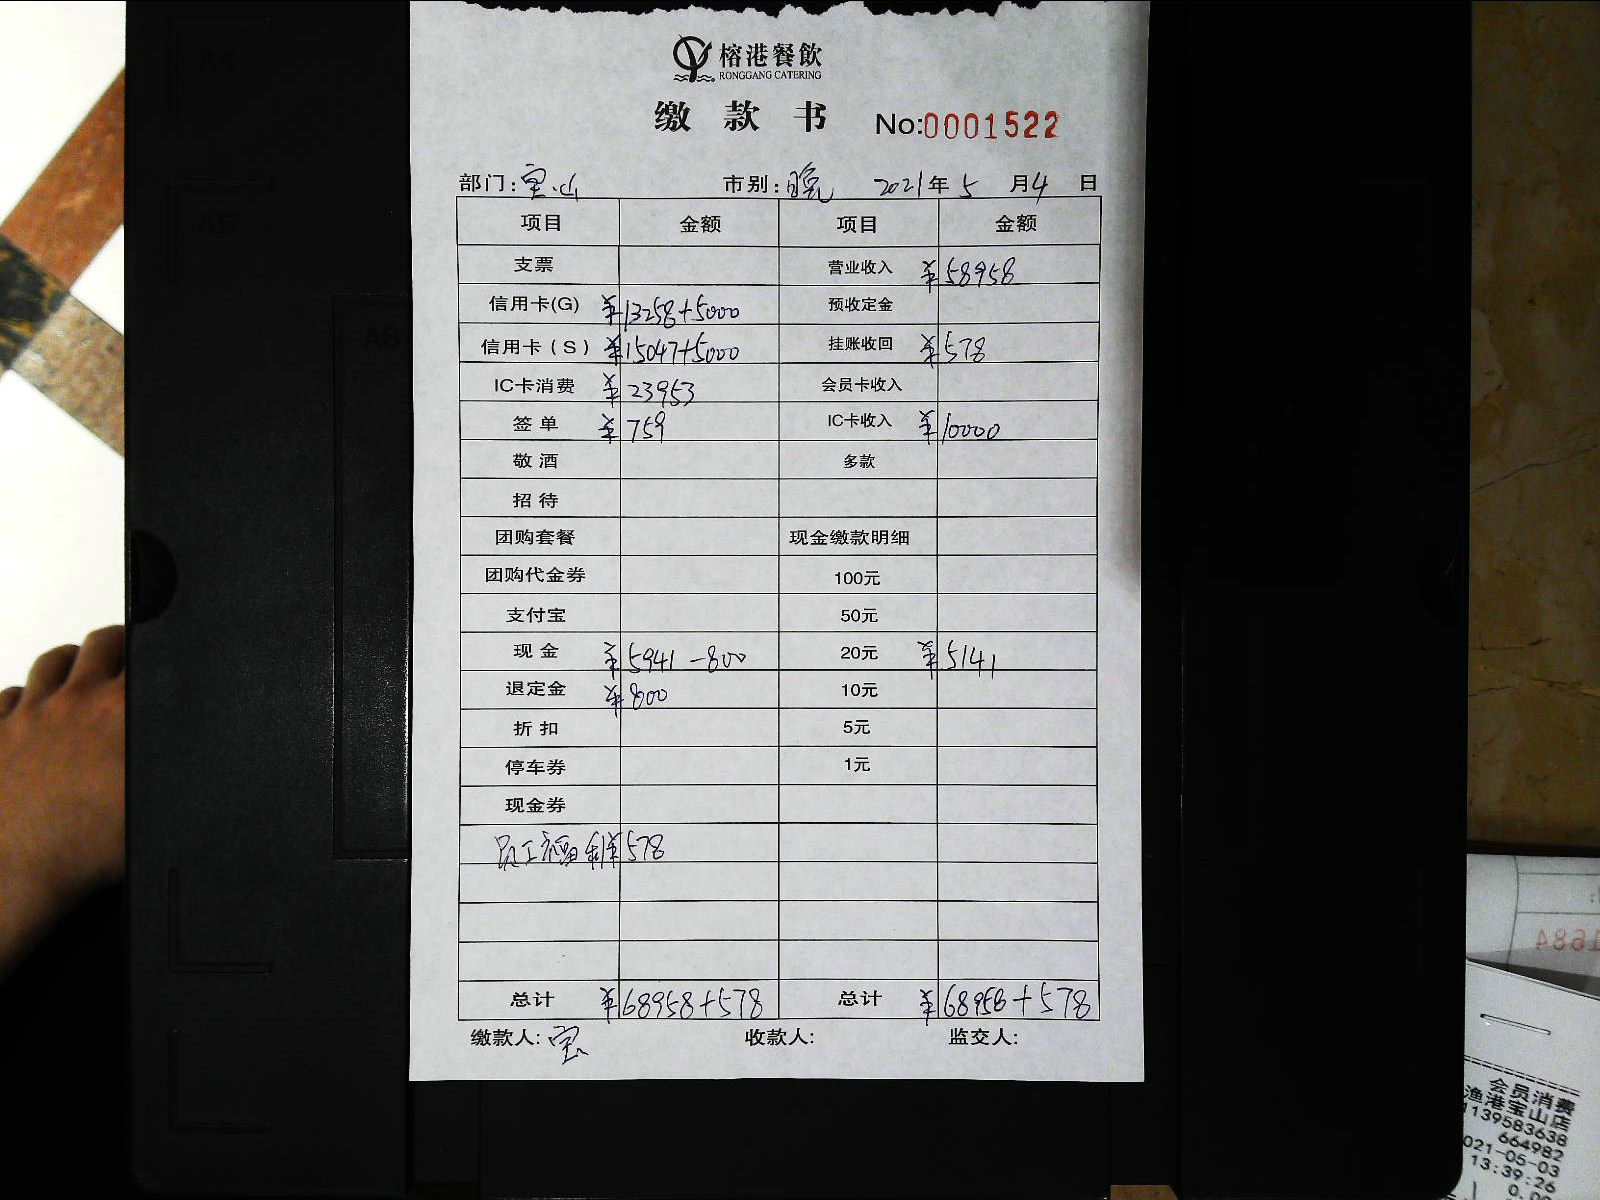 榕港餐飲
RONGGANG CATERING
缴 款 书 No:0001522
部门: 宝山 市别: 晚 2021年 5 月 4 日
项目 金额 项目 金额
支票 营业收入 ¥58958
信用卡(G) ¥13258+5000 预收定金
信用卡(S) ¥15047+5000 挂账收回 ¥578
IC卡消费 ¥23953 会员卡收入
签 单 ¥759 IC卡收入 ¥10000
敬 酒 多款
招 待
团购套餐 现金缴款明细
团购代金券 100元
支付宝 50元
现 金 ¥5941-800 20元 ¥5141
退定金 ¥800 10元
折 扣 5元
停车券 1元
现金券
员工福利 ¥578
总计 ¥68958+578 总计 ¥68958+578
缴款人: 宝 收款人: 监交人:
A6
A5
1684
会员消费
渔港宝山店
1139583638
664982
021-05-03
13:39:26